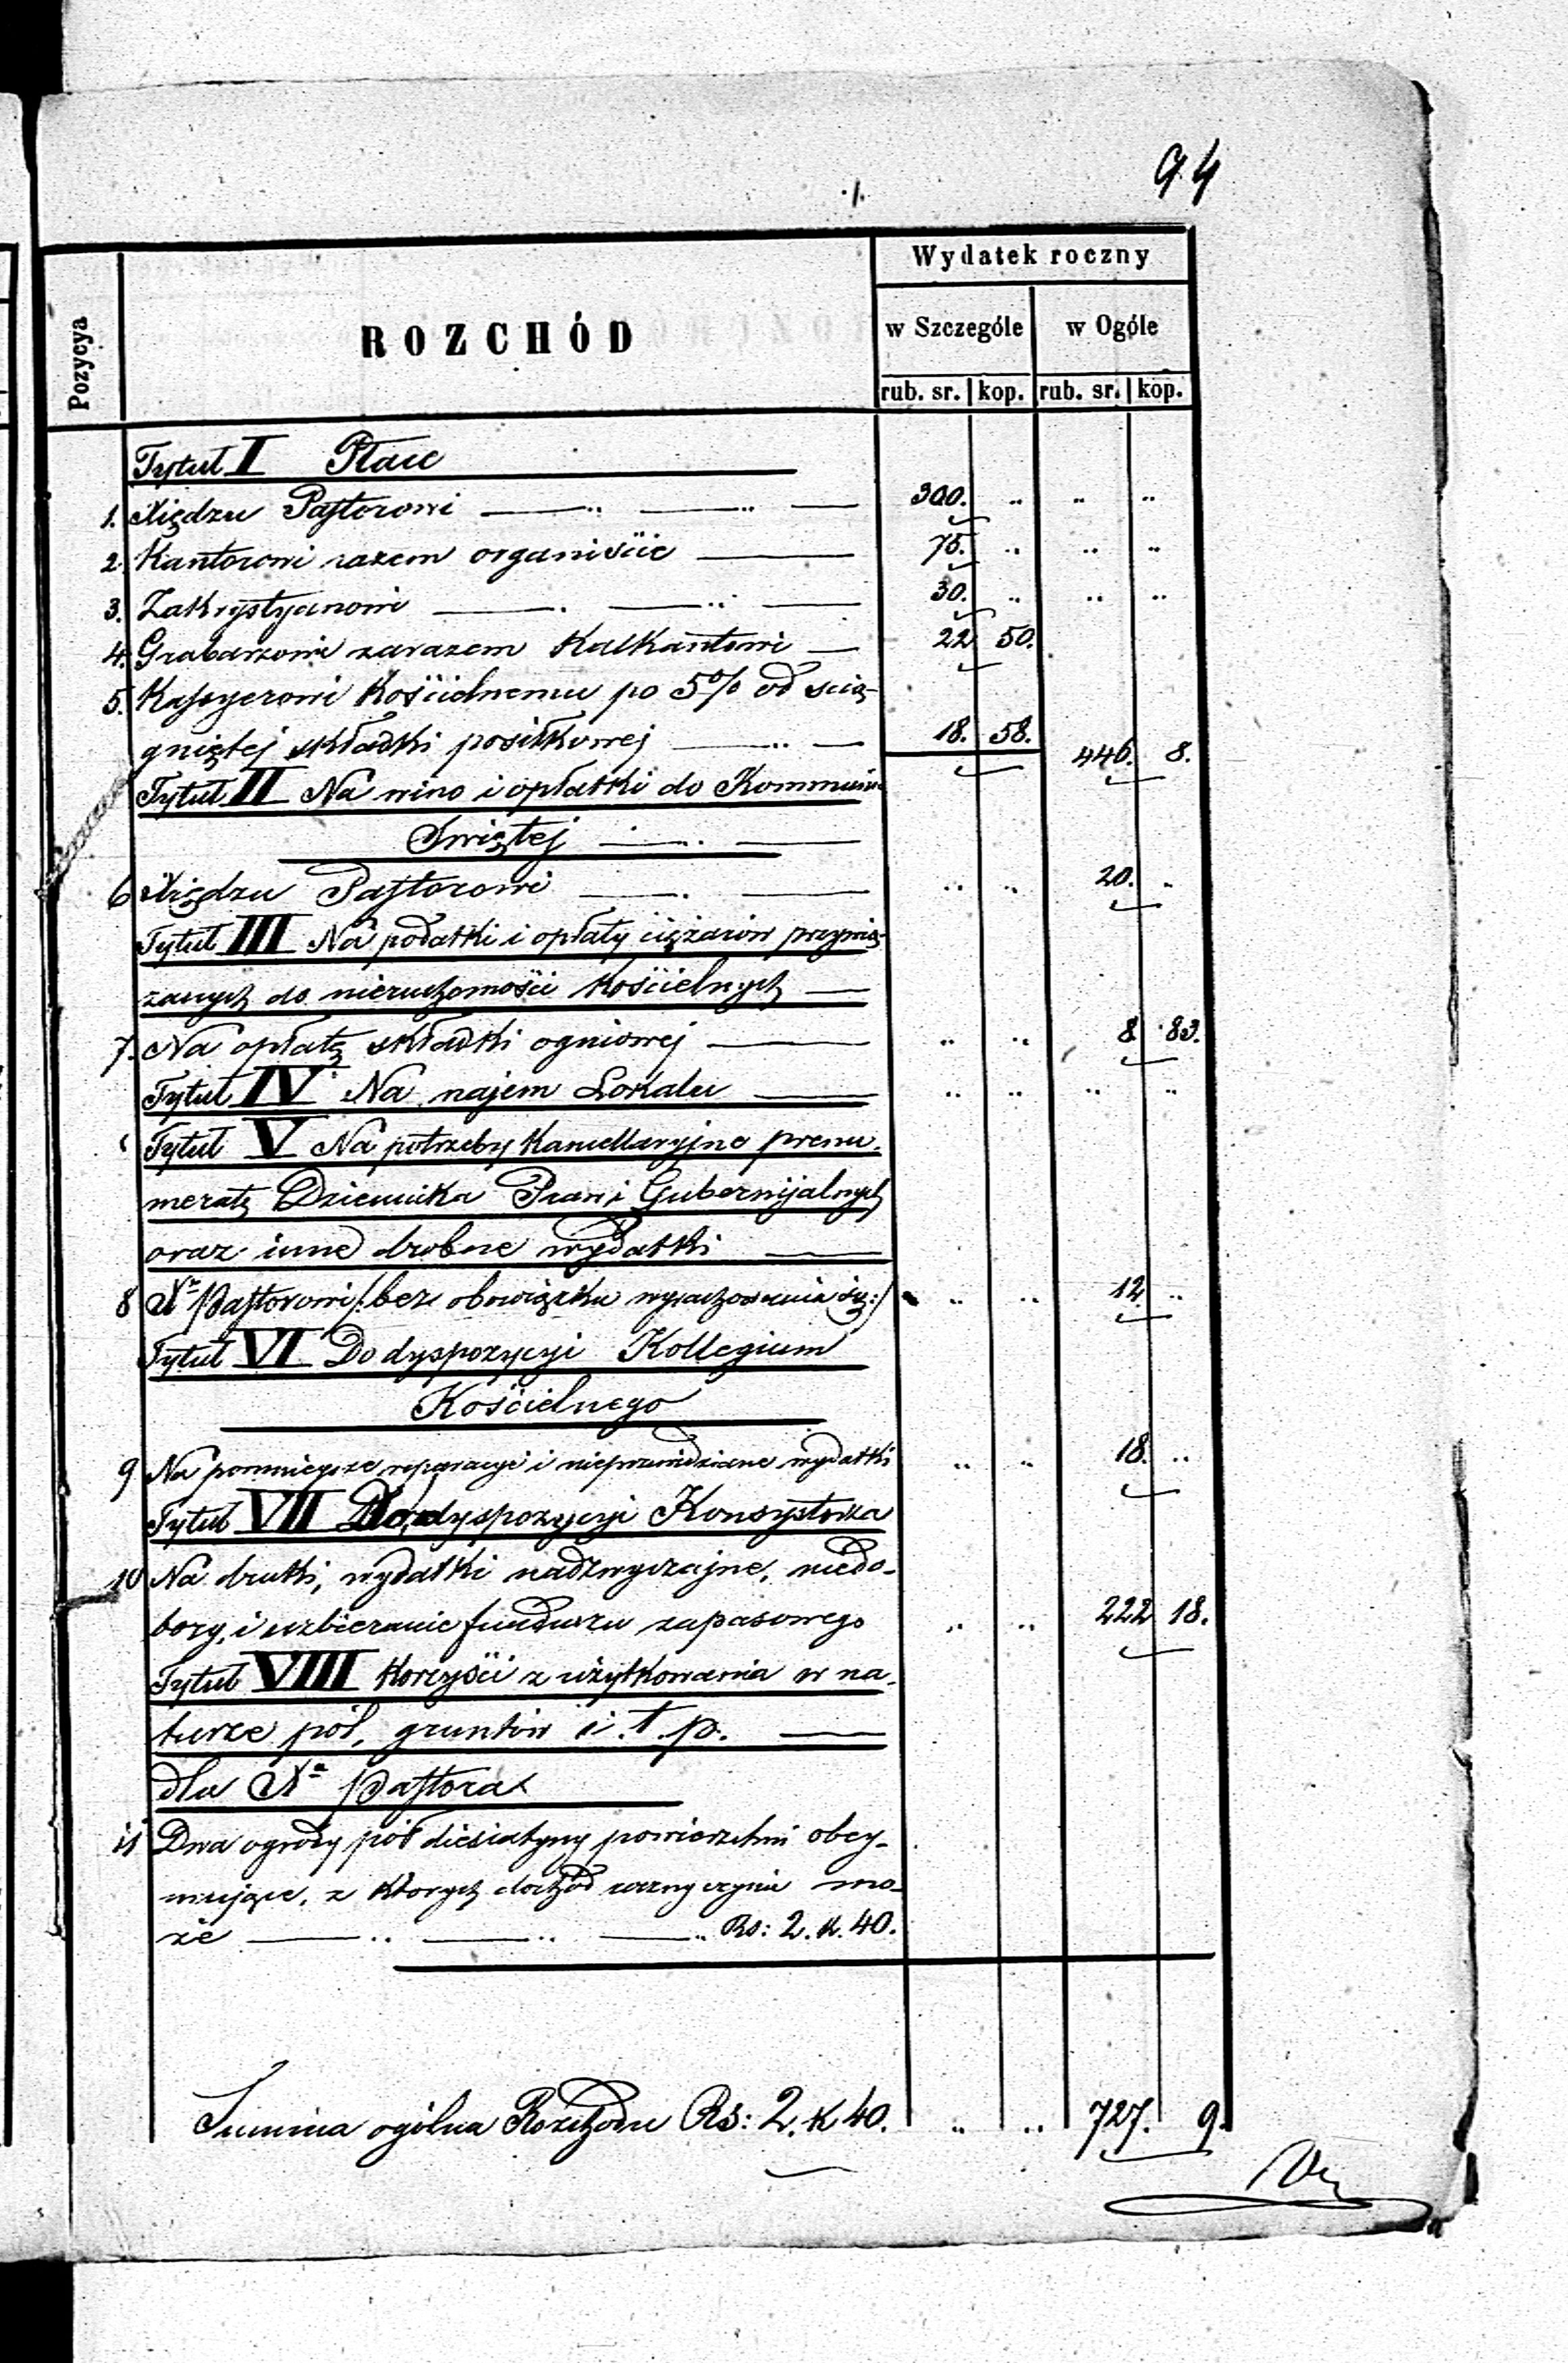 94
./.
Pozycya
ROZCHÓD
Wydatek roczny
w Szczególe
w Ogóle
rub. sr. kop. rub. sr. kop.
Tytuł I Płace
1. Xiędzu Pastorowi 300. .. .. ..
2. Kantorowi razem organiście 75. .. .. ..
3. Zakrystyanowi 30. .. .. ..
4. Grabarzowi zarazem Kalkantowi 22 50.
5. Kassyerowi Kościelnemu po 5% od ścią-
gniętej składki posiłkowej 18. 58. 446. 8.
Tytuł II Na wino i opłatki do Kommunii
Świętej
6 Xiędzu Pastorowi .. .. 20. ..
Tytuł III Na podatki i opłaty ciężarów przywią-
zanych do nieruchomości Kościelnych
7. Na opłatę składki ogniowej .. .. 8. 83.
Tytuł IV Na najem Lokalu .. .. .. ..
Tytuł V Na potrzeby Kancellaryjne prenu-
meratę Dziennika Praw i Gubernijalnych
oraz inne drobne wydatki
8 Xa Pastorowi /:bez obowiązku wyrachowania się:/ .. .. 12. ..
Tytuł VI Do dyspozycyi Kollegium
Kościelnego
9 Na pomniejsze reparacye i nieprzewidziane wydatki .. .. 18. ..
Tytuł VII Do dyspozycyi Konsystorza
10 Na druki, wydatki nadzwyczajne, niedo-
bory, i uzbieranie funduszu zapasowego .. .. 222 18.
Tytuł VIII Korzyści z użytkowania w na-
turze pól, gruntów i.t.p.
dla Xa Pastora
11 Dwa ogrody pół diesiatyny powierzchni obej-
mujące, z których dochód roczny czynić mo-
że Rs: 2. k. 40.
Summa ogólna Rozchodu Rs: 2. k 40. .. .. 727. 9.